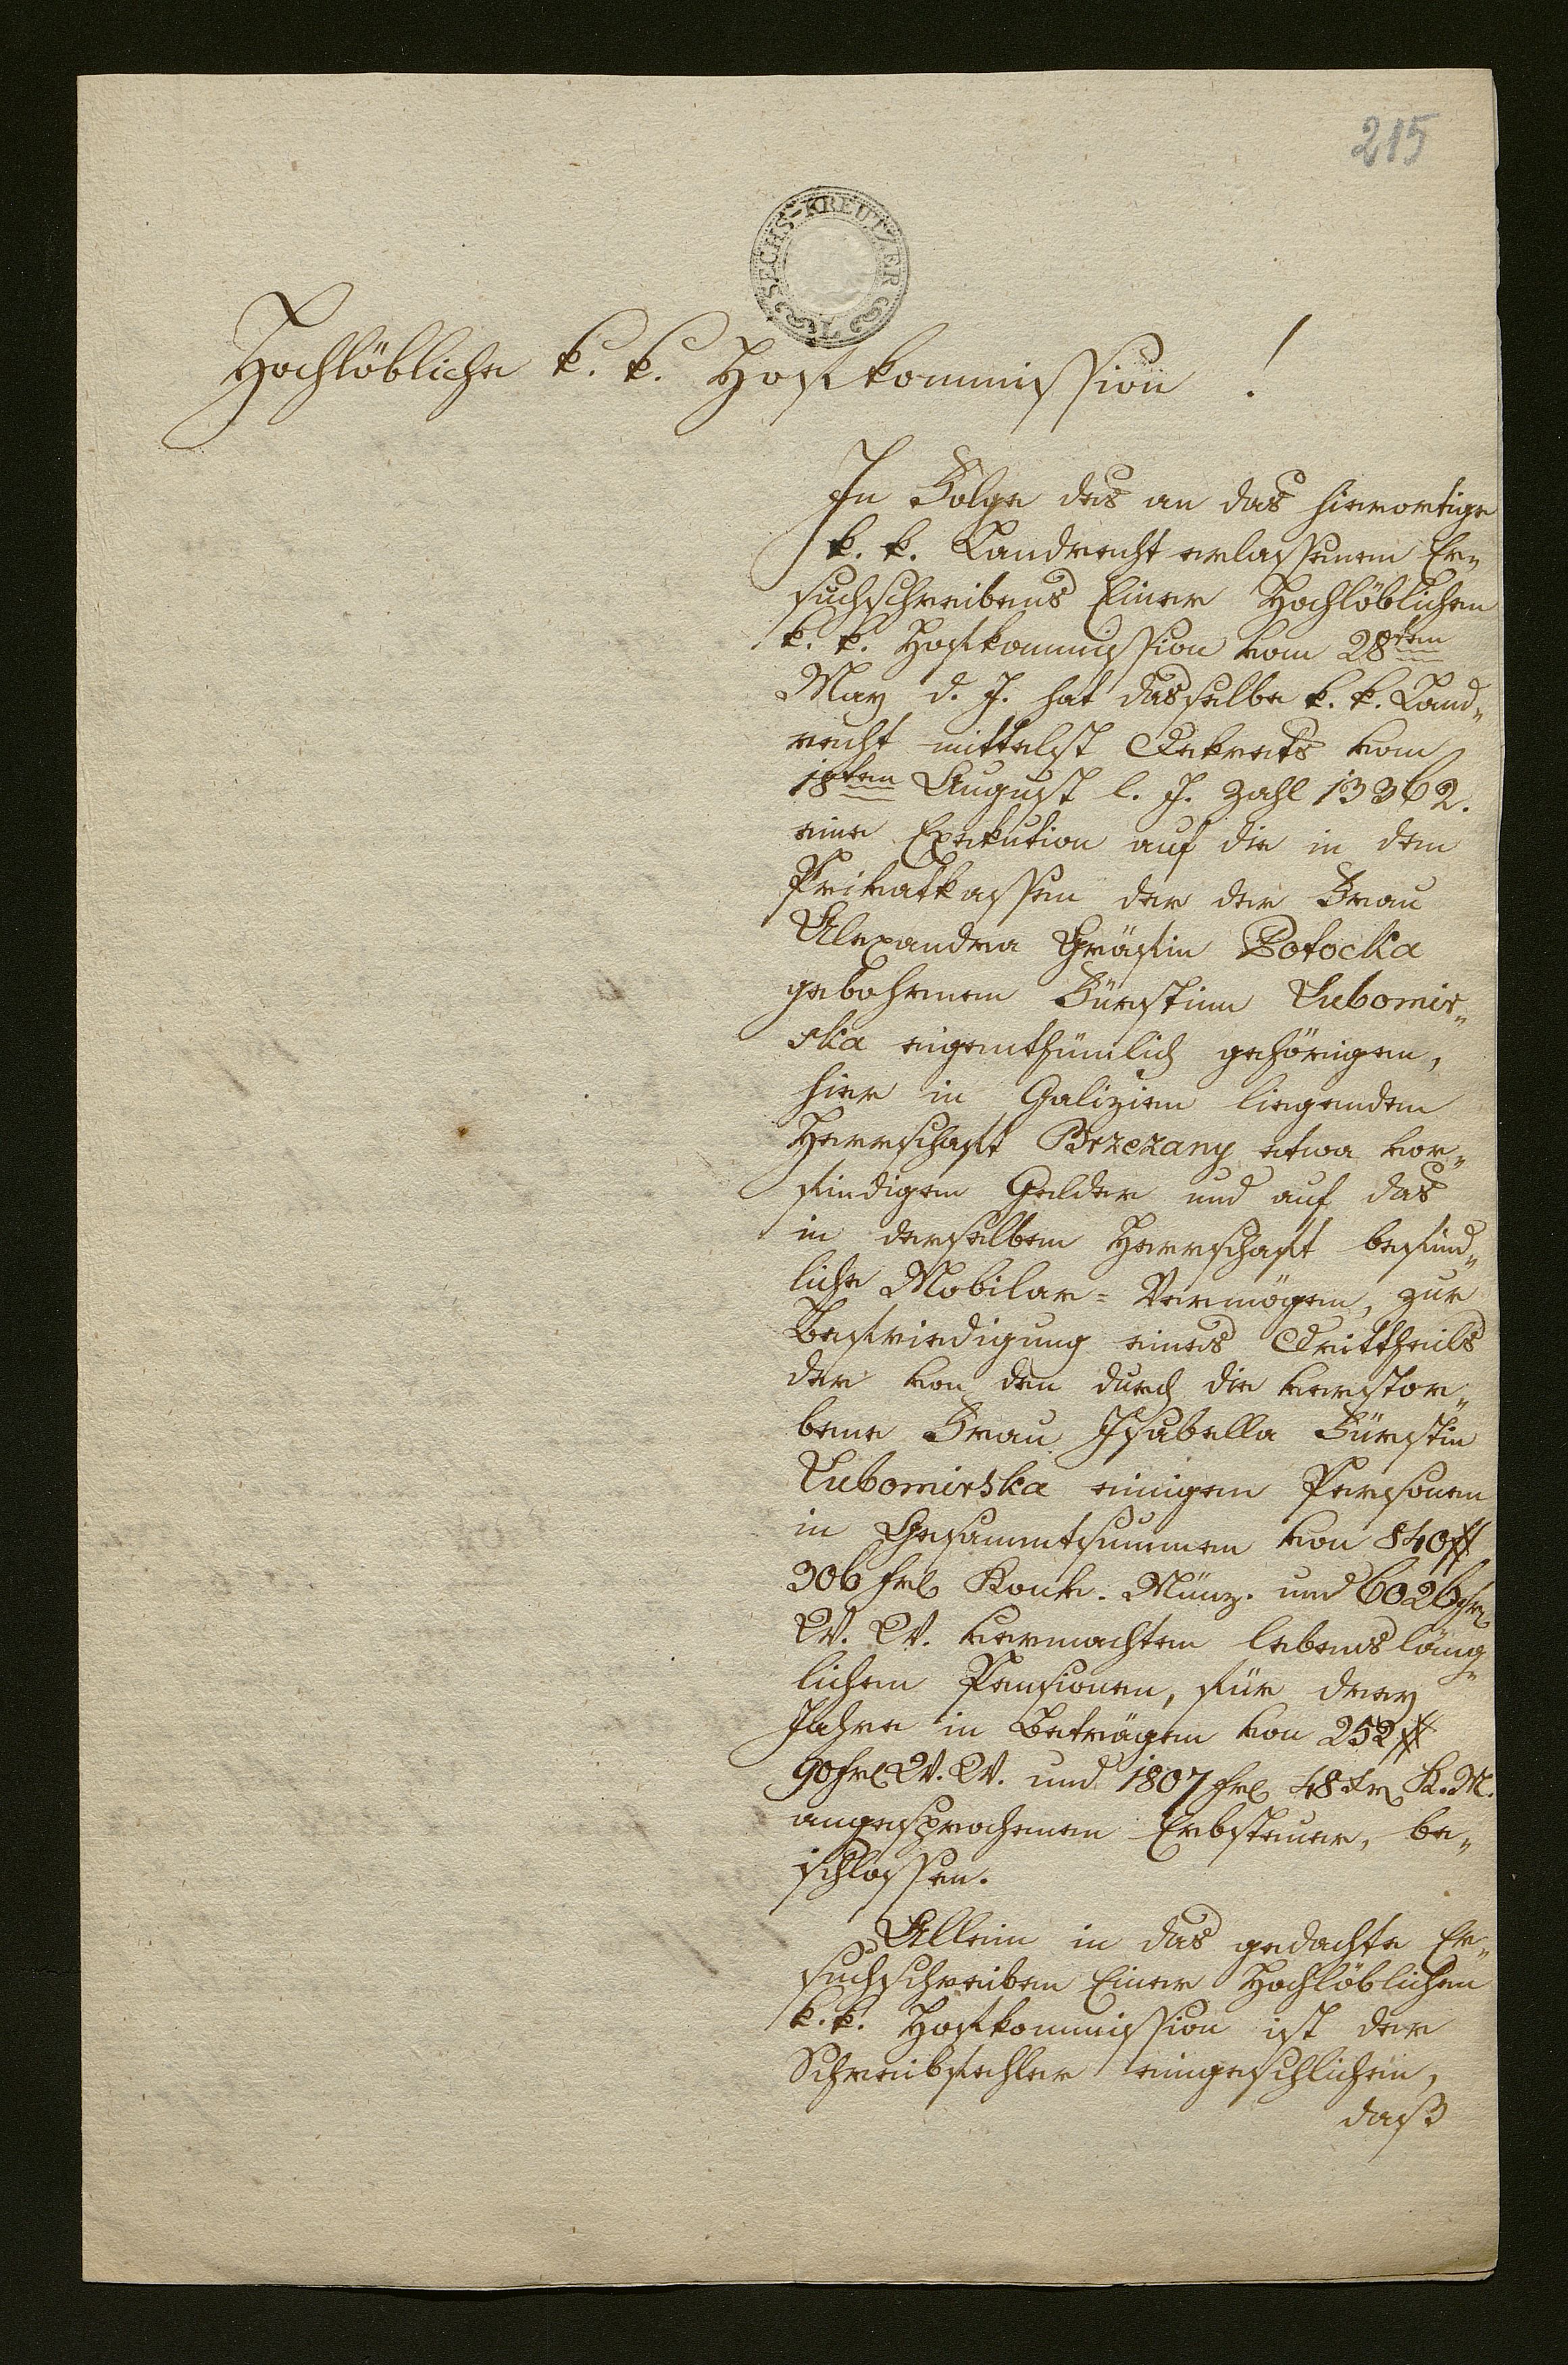 215
SECHS-KREUTZER
Hochlöbliche k. k. Hofkommission !
In Folge des an das hierortige
k. k. Landrecht erlassenen Er„
suchschreibens Einer Hochlöblichen
k. k. Hofkommission vom 28ten
May d. J. hat dasselbe k. k. Land„
recht mittelst Dekrets vom
18ten August l. J. Zahl 13362.
eine Exekution auf die in den
Privatkassen der der Frau
Alexandra Gräfin Potocka
gebohrnen Fürstinn Lubomir„
ska eigenthümlich gehörigen,
hier in Galizien liegenden
Herrschaft Brzezany etwa vor„
findigen Gelder und auf das
in derselben Herrschaft befind„
liche Mobilar=Vermögen, zur
Befriedigung eines Drittheils
der von den durch die verstor„
bene Frau Isabella Fürstin
Lubomirska einigen Personen
in Gesammtsummen von 840 #
306 fr Konv. Münz. und 6026 fr
W. W. vermachten lebensläng„
lichen Pensionen, für drey
Jahre in Beträgen von 252 #
90 fr W. W. und 1807 fr 48 xr K. M.
angesprochenen Erbsteuer, be„
schlossen.
Allein in das gedachte Er„
suchschreiben Einer Hochlöblichen
k. k. Hofkommission ist der
Schreibfehler eingeschlichen,
daß